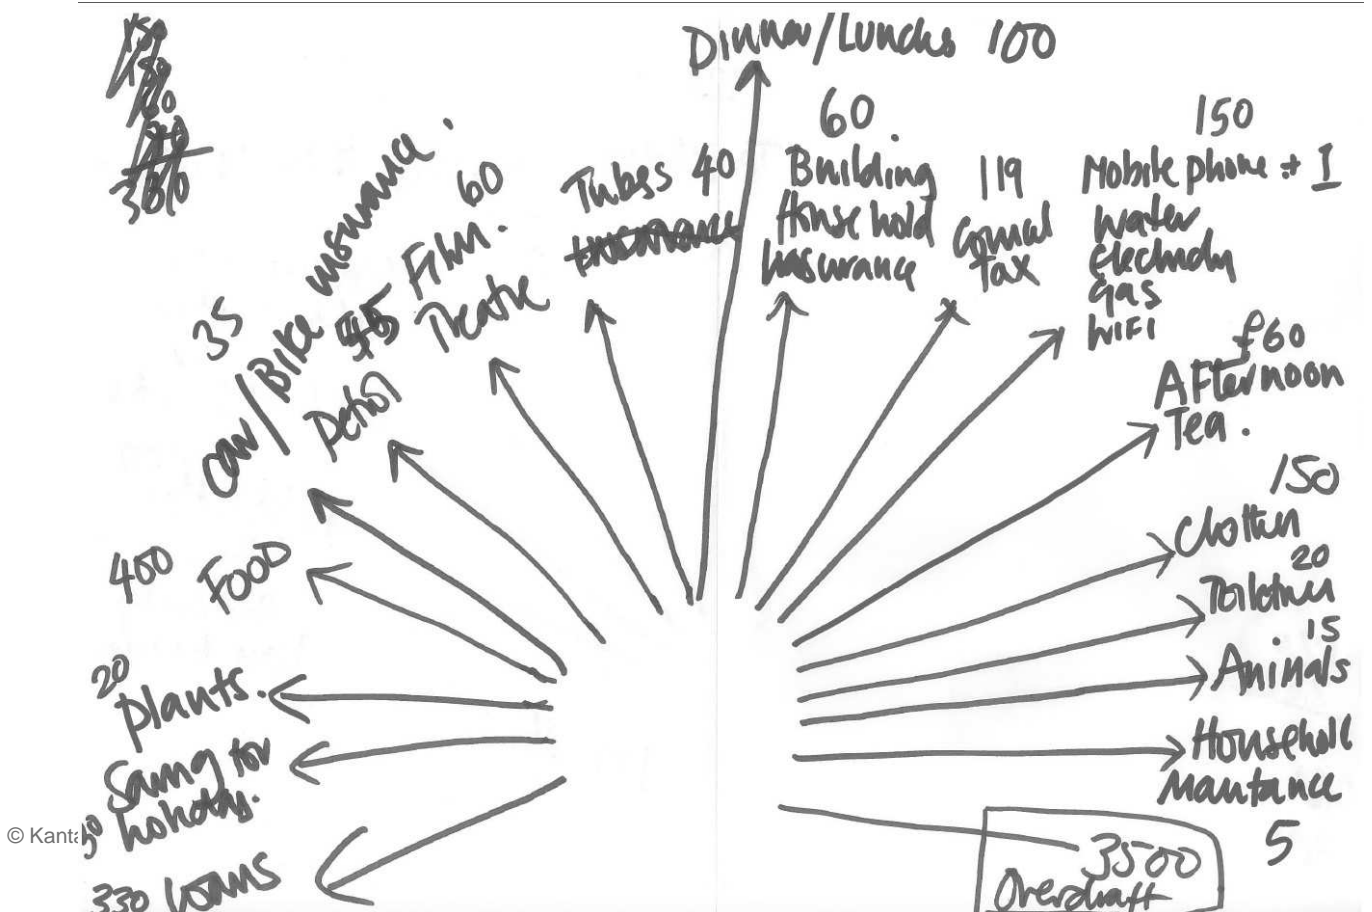 Dinner/Lunchs 100
60
Building
Household
Insurance
119
Council
tax
150
Mobile phone + I
Water
Electricity
Gas
WIFI
£60
Afternoon
Tea.
150
Clothes
20
Toiletries
15
Animals
Household
Maintance
5
3500
Overdraft
Tubes 40
60
Film.
Theatre
Petrol
35
Car/Bike insurance.
400 FOOD
20
Plants.
Saving for
holidays.
330 Loans
© Kanta